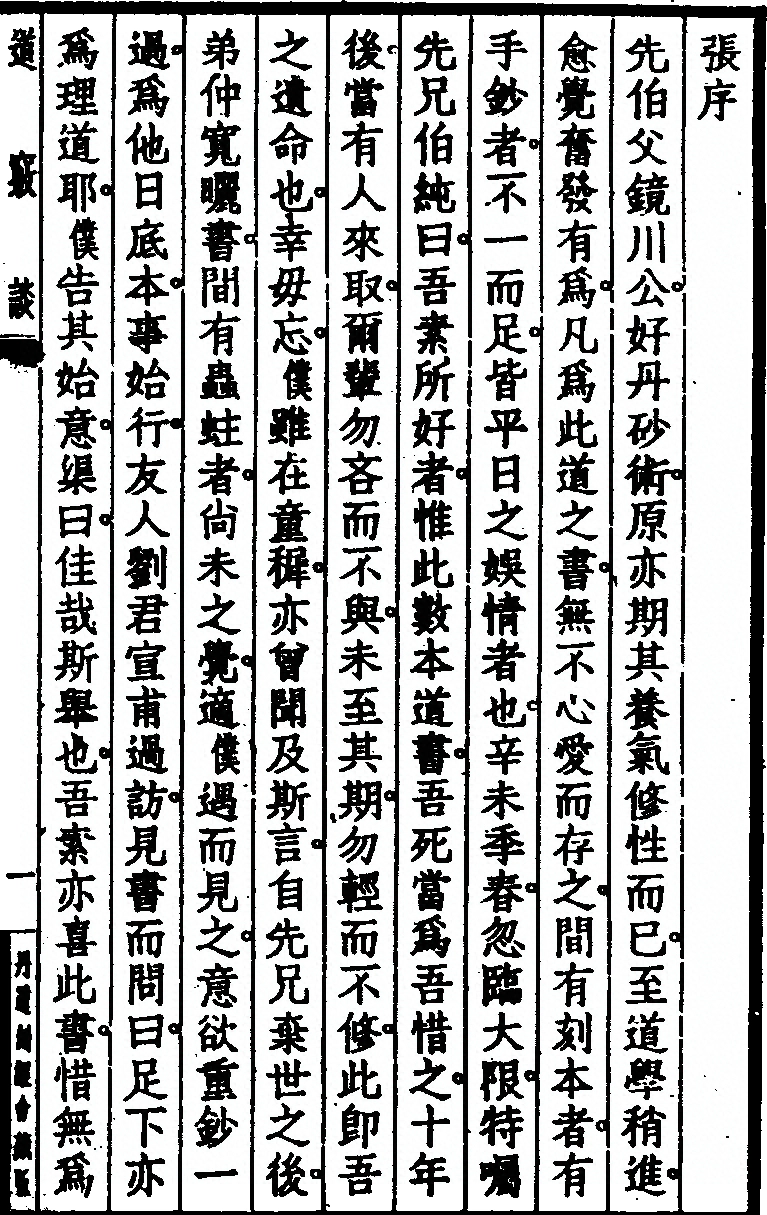 張序
先伯父鏡川公。好丹砂術。原亦期其養氣修性而已。至道學稍進。
愈覺奮發有爲。凡爲此道之書。無不心愛而存之。間有刻本者。有
手鈔者。不一而足。皆平日之娛情者也。辛未季春。忽臨大限。特囑
先兄伯純曰。吾素所好者。惟此數本道書。吾死當爲吾惜之。十年
後。當有人來取。爾輩勿吝而不與。未至其期。勿輕而不修。此卽吾
之遺命也。幸毋忘。僕雖在童穉。亦曾聞及斯言。自先兄棄世之後。
弟仲寬曬書。間有蟲蛀者。尙未之覺。適僕過而見之。意欲重鈔一
過。爲他日底本。事始行。友人劉君宣甫過訪。見書而問曰。足下亦
爲理道耶。僕告其始意。渠曰。佳哉斯舉也。吾素亦喜此書。惜無爲
道竅談
一
丹道刻經會藏版